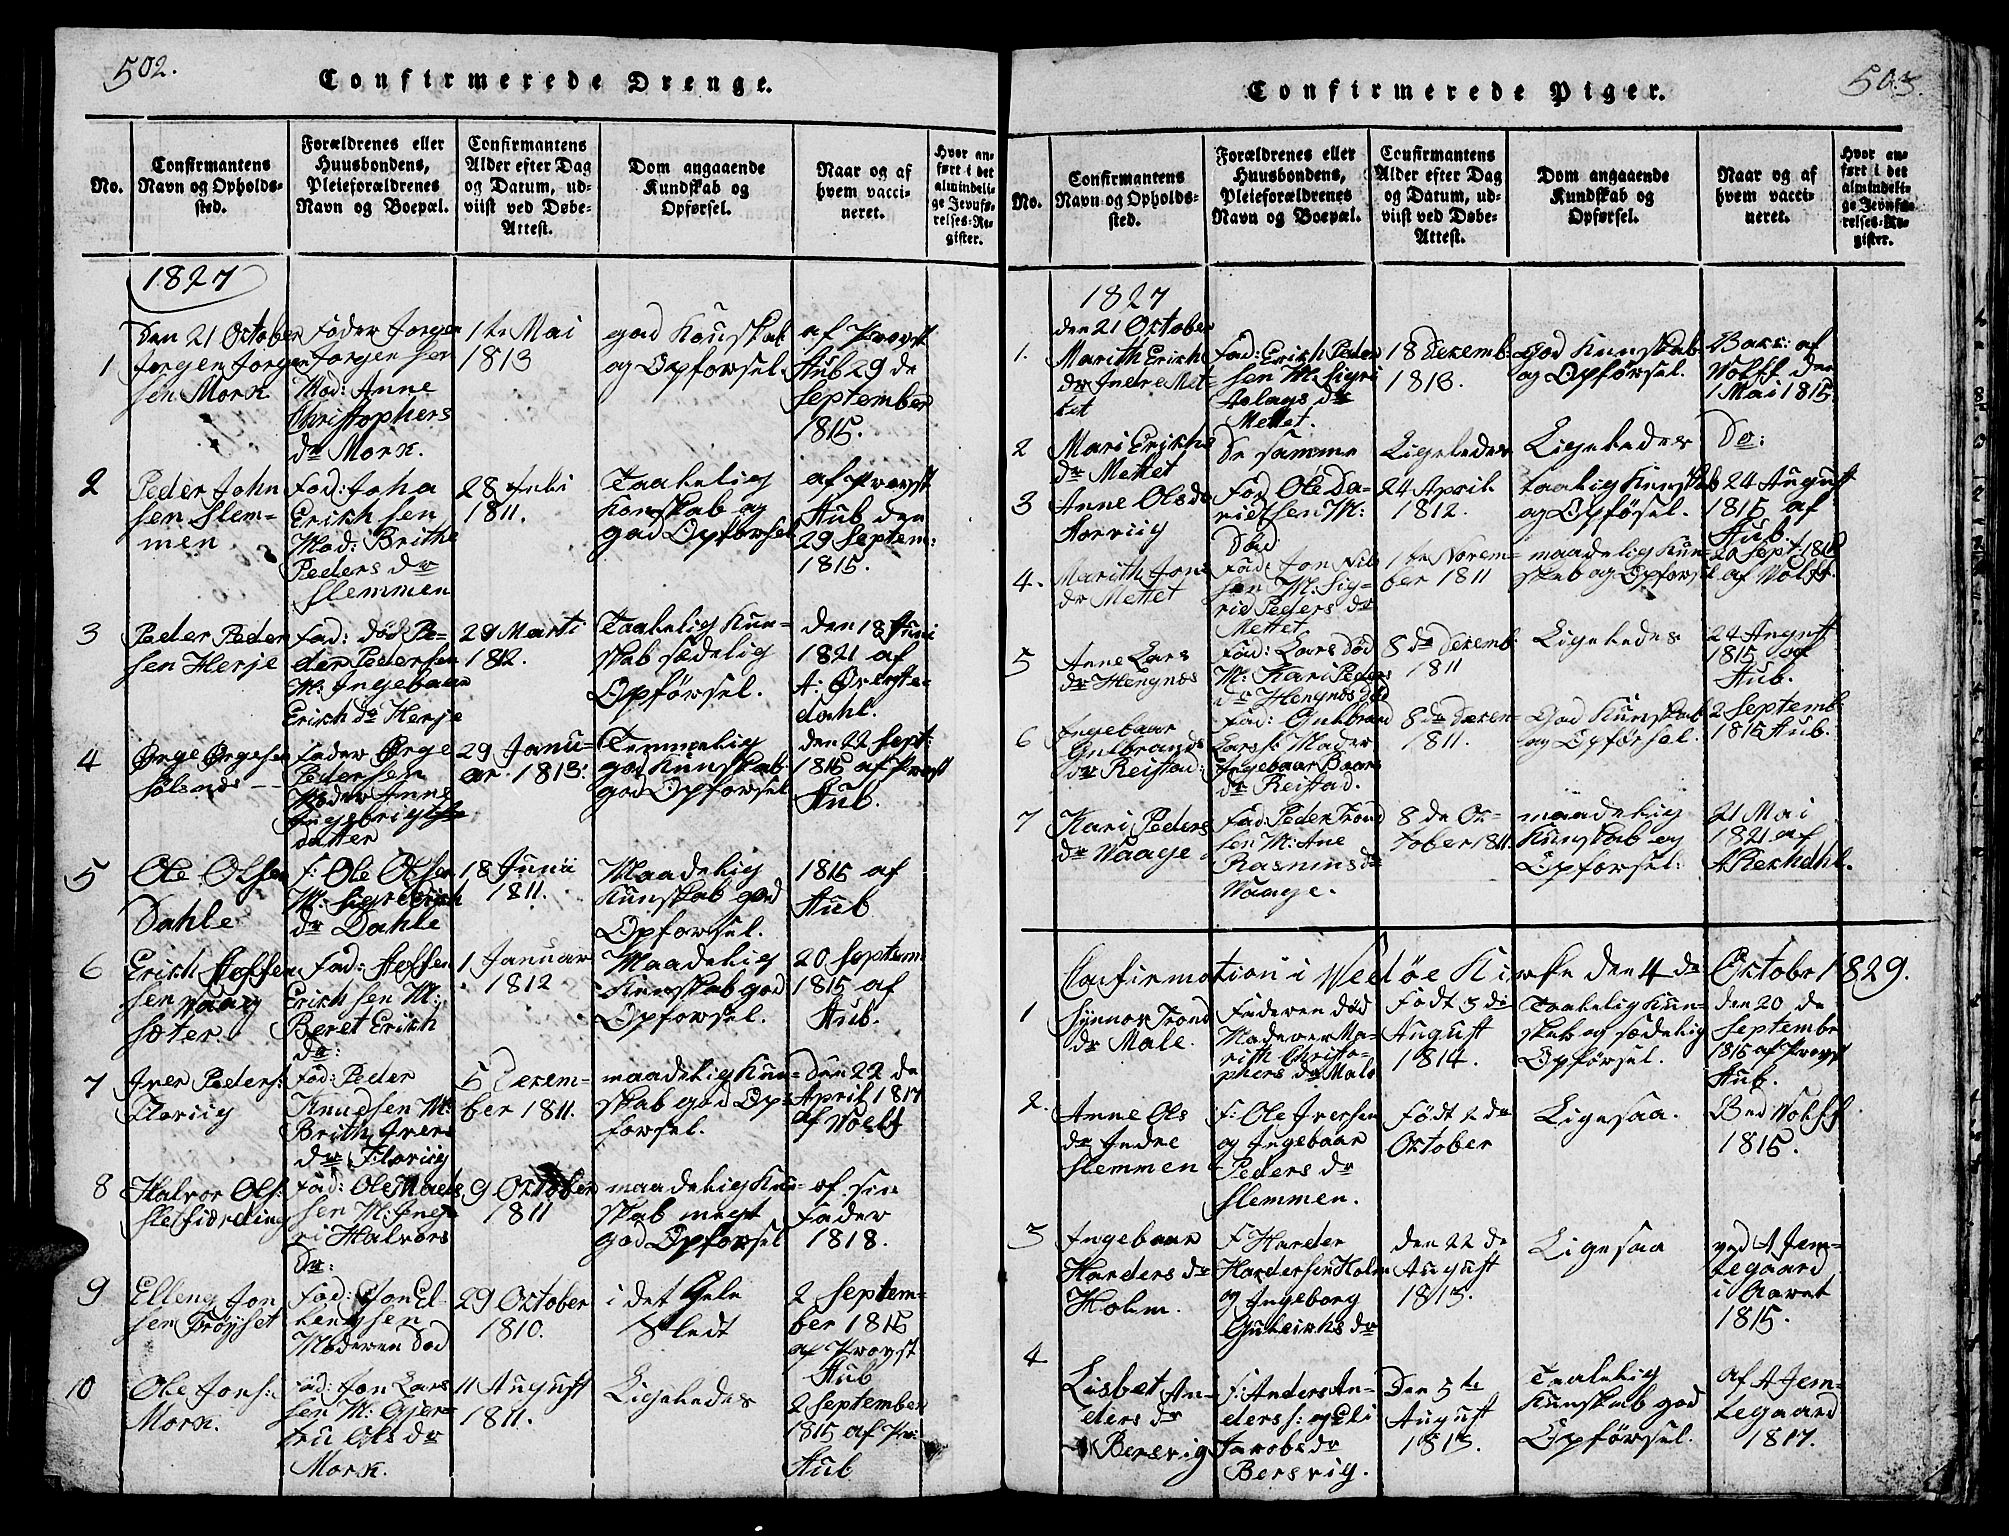 502.
Confirmerede Drenge.
No.
Confirmantens
Navn og Opholds-
sted.
Forældrenes eller
Huusbondens,
Pleieforældrenes
Navn og Boepæl.
Confirmantens
Alder efter Dag
og Datum, ud-
viist ved Døbe-
Attest.
Dom angaaende
Kundskab og
Opførsel.
Naar og af
hvem vacci-
neret.
Hvor an-
ført i det
almindeli-
ge Jevnfø-
relses-Re-
gister.
1827
Den 21 October
1
Jørgen Jørgen
sen Mork
Fader Jørgen
Jørgen sen
Mod: Anne
Christophers
dr Mork.
1te Mai
1813
god Kunskab
og Opførsel.
af Provst
Aub 29 de
September
1815.
2
Peder John
sen Slem-
men
Fad: Joha
Erich sen
Mod: Brithe
Peders dr
Slemmen
28 Juli
1811.
Taalelig
Konskab og
god Opførsel
af Provst
Aub den
29 Septem:
1815.
3
Peder Peder
sen Herje
Fad: død Pe-
der Pedersen
M: Ingebaar
Erich dr Herje
29 Marti
1812.
Taalelig Kun-
skab sædelig
Opførsel.
den 18 Juni
1821 af
A: Øverste-
dahl.
4
Ørge Ørgesen
Solsnes
Fader Ørge
Pedersen
Moder Anne
Ingebrigts
datter
29 Janu-
ar. 1813.
Temmelig
god Kunskab
god Opførsel
den 22 Sept:
1815 af Provst
Aub.
5
Ole Olsen
Dahle
F: Ole Olsen
M: Sigri Erich
dr Dahle
18 Junii
1811.
Maadelig
Kunskab god
Opførsel.
1815 af
Aub
6
Erich Steffen
sen Vaag
sæter.
Fad: Steffen
Erich sen M:
Beret Erich
dr:
1 Januar
1812
Maadelig
Kunskab god
Opførsel.
20 Septem
1815 af
Aub.
7
Iver Peders:
Flovig
Fad: Peder
Knudsen M:
Brith Ivers
dr Flovig
5 Decem-
ber 1811.
maadelig Kun-
skab god Op-
førsel.
Den 22 de
April 1817
af Volff
8
Halvor Ols:
Sletfiærding
Fad: Ole Mads
sen M: Inge
ri Halvors
Dr:
9 October
1811
maadelig Kun-
skab megt
god Opførsel
af sin
Fader
1818.
9
Elling Jon
sen Frøyset
Fad: Jon El-
lingsen
Moderen død
29 October
1810.
i det Hele
Slet
2 Septem-
ber 1815
af Provst
Aub
10
Ole Jons:
Mork.
Fad: Jon Lars
sen M: Gjer-
tru Ols dr
Mork.
11 August
1811.
Ligeledes
2 September
1815 af Pr:
Aub
503.
Confirmerede Piger.
No.
Confirmantens
Navn og Opholds-
sted.
Forældrenes eller
Huusbondens,
Pleieforældrenes
Navn og Boepæl.
Confirmantens
Alder efter Dag
og Datum, ud-
viist ved Døbe-
Attest.
Dom angaaende
Kundskab og
Opførsel.
Naar og af
hvem vacci-
neret.
Hvor an-
ført i det
almindeli-
ge Jevnfø-
relses-Re-
gister.
1827
den 21 October
1.
Marith Erich
dr Indre Met-
tet
Fad: Erich Peder
sen M. Sigri
Aslags dr
Mettet.
18 Decemb.
1813.
God Kunskab
og Opførsel.
af
Volff den
1 Mai 1815
2
Mari Erichs
dr Mettet
De samme
Ligeledes
Ligeledes
Do:
3
Anne Ols dr
Horvig
Fad Ole Da-
vidsen M:
Død
24 April
1812.
taalig Kunskab
og Opførsel.
24 August
1815 af
Aub.
4.
Marith Jons
dr Mettet
Fad: Jon Nils
sen M: Sig-
rid Peders dr
Mettet
1te Novem-
ber 1811
maadelig Kun-
skab og Opførsel
20 Sept. 1815
af Volff.
5
Anne Lars
dr Hengnæs
Fad: Lars død
M: Kari Peders
dr Hengnæs død
8 de Decemb
1811
Ligeledes
24 August
1815 af
Aub.
6
Ingebaar
Gulbrands
dr Reistad:
Fad: Gulbrand
Lars s: Moder
Ingebaar Baars
dr Reistad.
8 de Decem-
1811.
God Kunskab
og Opførsel.
2 Septemb
1815 Aub.
7
Kari Peders
dr Vaage
Fad: Peder Trond
sen M: Ane
Rasmus dr
Vaage.
8 de Oc-
tober 1811
maadelig
Kunskab og
Opførsel:
21 Mai
1821 af
A Bekdahl.
Confirmation i Vedøe Kirke den 4 de October 1829.
1
Synnov Trond
dr Male.
Faderen død
Moderen Ma-
rith Christo-
phers dr Male
Født 3 de
August
1814.
Taalelig Kun-
skab og sædelig
Opførsel.
den 20 de
Septembr
1815 af Provst
Aub.
2.
Anne Ols
dr Indre
Slemmen
F: Ole Iversen
og Ingebaar
Peders dr
Slemmen.
Født 2 de
October
Ligesaa.
Ved Volff
1815.
3
Ingebaar
Harders dr
Holm.
F Harder
Hardersen Holm
og Ingeborg
Guleichs dr
den 22 de
August
1813.
Ligesaa
ved A Jem-
tegaard
i Aaret
1815.
4
Lisbet An-
ders dr
Bersvig
F: Anders An-
ders s: og Eli
Jacobs dr
Bersvig.
Den 5 te
August
1813.
Taalelig
Kunskab god
Opførsel.
af A Jem-
tegaard
1817.